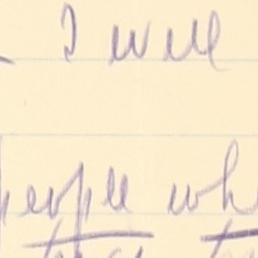 I will
people wh